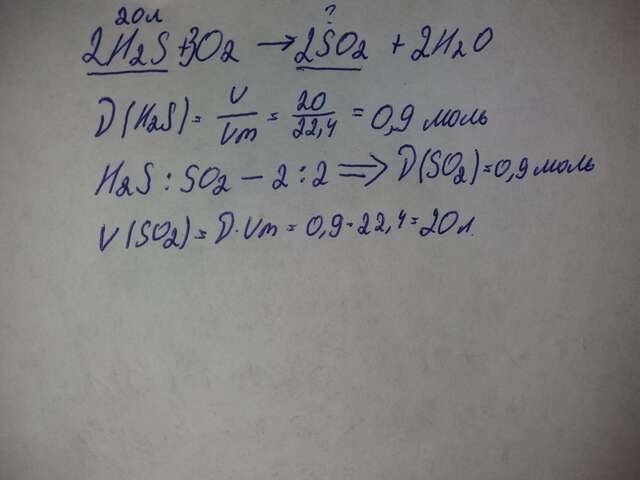 20л ?
2H₂S + 3O₂ → 2SO₂ + 2H₂O
D(H₂S) = V/Vm = 20/22,4 = 0,9 моль
H₂S : SO₂ – 2 : 2 ⟹ D(SO₂) = 0,9 моль
V(SO₂) = D · Vm = 0,9 · 22,4 = 20л.